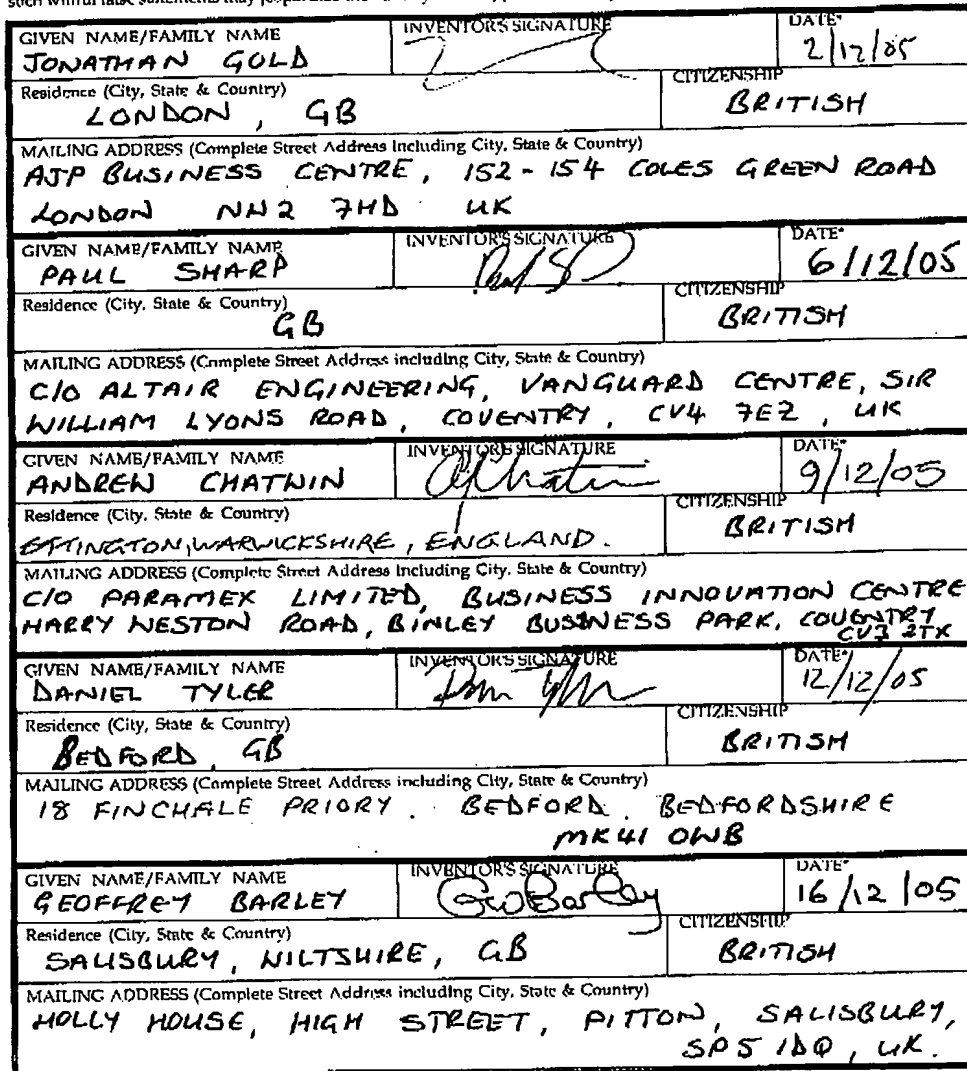 GIVEN NAME/FAMILY NAME INVENTOR'S SIGNATURE DATE*
JONATHAN GOLD 2/12/05
Residence (City, State & Country) CITIZENSHIP
LONDON, GB BRITISH
MAILING ADDRESS (Complete Street Address Including City, State & Country)
AJP BUSINESS CENTRE, 152-154 COLES GREEN ROAD
LONDON NW2 7HD UK
GIVEN NAME/FAMILY NAME INVENTOR'S SIGNATURE DATE*
PAUL SHARP 6/12/05
Residence (City, State & Country) CITIZENSHIP
GB BRITISH
MAILING ADDRESS (Complete Street Address including City, State & Country)
C/O ALTAIR ENGINEERING, VANGUARD CENTRE, SIR
WILLIAM LYONS ROAD, COVENTRY, CV4 7EZ, UK
GIVEN NAME/FAMILY NAME INVENTOR'S SIGNATURE DATE*
ANDREW CHATWIN 9/12/05
Residence (City, State & Country) CITIZENSHIP
ETTINGTON, WARWICKSHIRE, ENGLAND. BRITISH
MAILING ADDRESS (Complete Street Address Including City, State & Country)
C/O PARAMEX LIMITED, BUSINESS INNOVATION CENTRE
HARRY WESTON ROAD, BINLEY BUSINESS PARK, COVENTRY
CV3 2TX
GIVEN NAME/FAMILY NAME INVENTOR'S SIGNATURE DATE*
DANIEL TYLER 12/12/05
Residence (City, State & Country) CITIZENSHIP
BEDFORD, GB BRITISH
MAILING ADDRESS (Complete Street Address including City, State & Country)
18 FINCHALE PRIORY. BEDFORD. BEDFORDSHIRE
MK41 0WB
GIVEN NAME/FAMILY NAME INVENTOR'S SIGNATURE DATE*
GEOFFREY BARLEY 16/12/05
Residence (City, State & Country) CITIZENSHIP
SALISBURY, WILTSHIRE, GB BRITISH
MAILING ADDRESS (Complete Street Address including City, State & Country)
HOLLY HOUSE, HIGH STREET, PITTON, SALISBURY,
SP5 1DQ, UK.